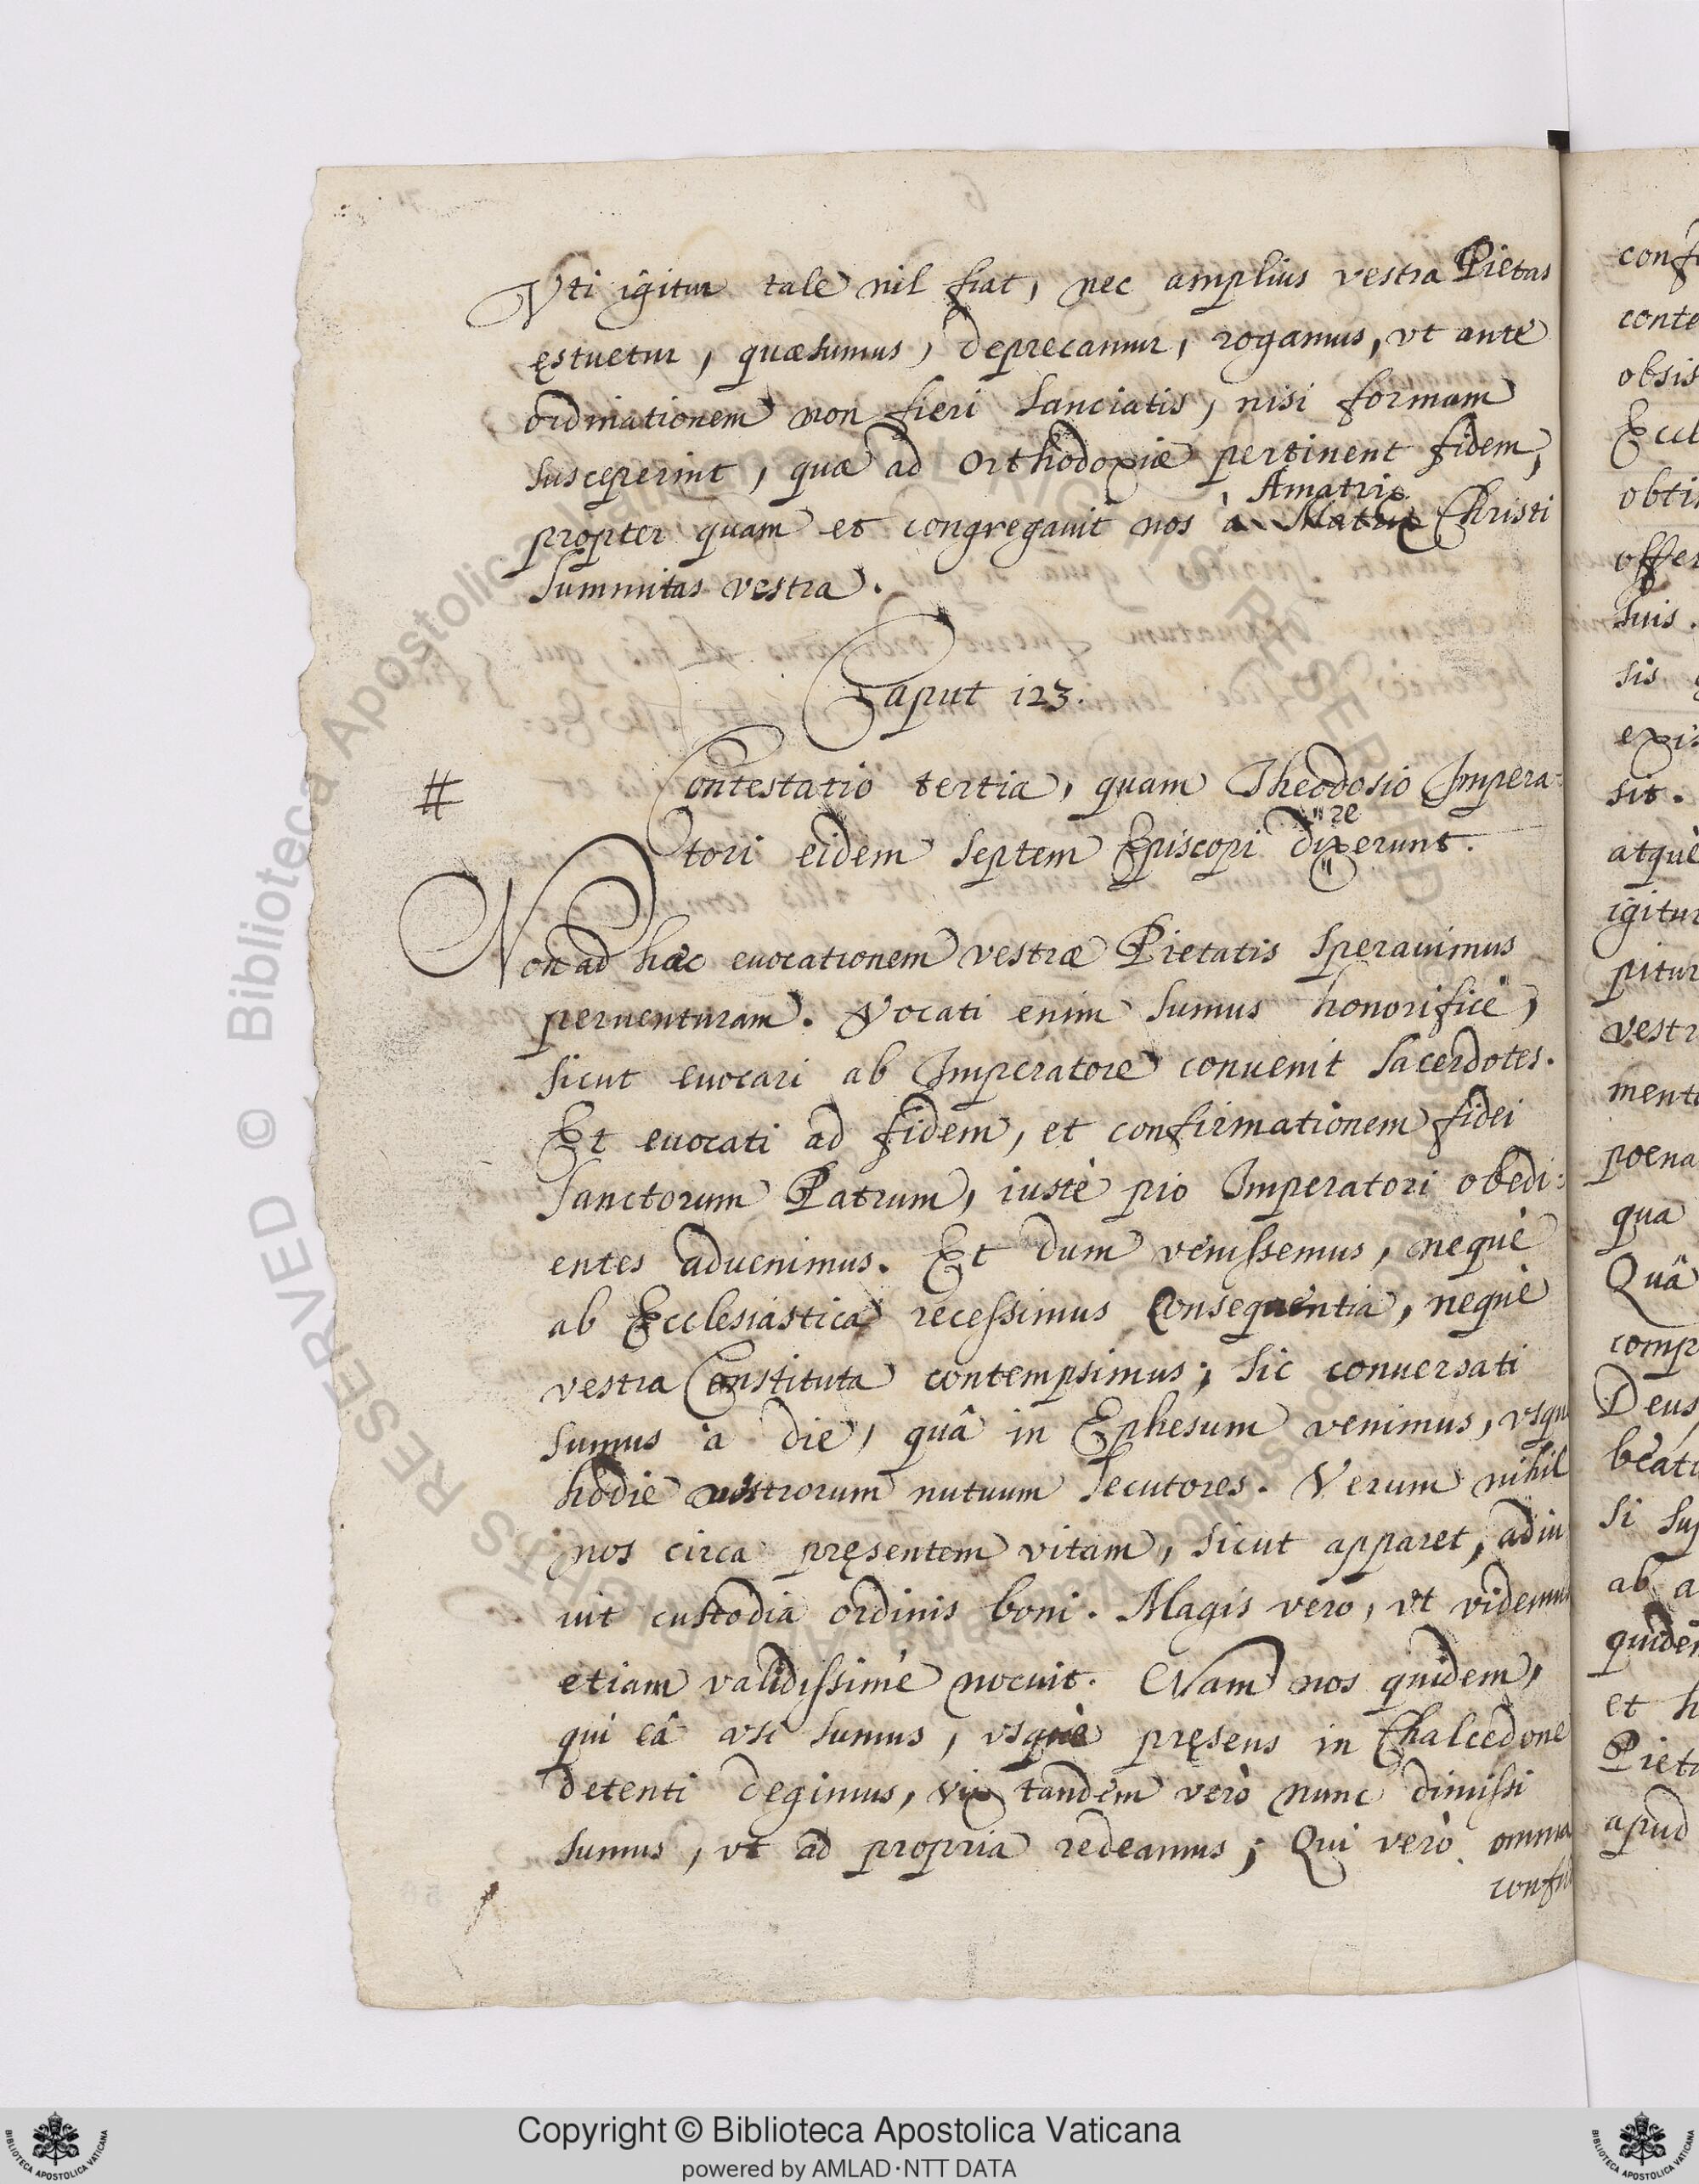 Vti igitur tale nil fiat, nec amplius vestra Pietas
ęstuetur, quæsumus, deprecamur, rogamus, vt ante
ordinationem non fieri sanciatis, nisi formam
susceperint, quæ ad Orthodoxiæ pertinent fidem,
Amatrix
propter quam et congregauit nos à Matrix Christi
summitas vestra.
Caput 123.
# Contestatio tertia, quam Theodosio Impera-
re
tori eidem septem Episcopi dixerunt.
Non ad hæc euocationem vestræ Pietatis sperauimus
peruenturam. Vocati enim sumus honorificè,
sicut euocari ab Imperatore conuenit sacerdotes.
Et euocati ad fidem, et confirmationem fidei
sanctorum Patrum, iustè pio Imperatori obedi:
entes aduenimus. Et dum venissemus, nequè
ab Ecclesiastica recessimus Consequentia, nequè
vestra Constituta contempsimus; sic conuersati
sumus à die, quâ in Ephesum venimus, vsqu
hodie vestrorum nutuum secutores. Verum nihil
nos circa pręsentem vitam, sicut apparet, adiu
uit custodia ordinis boni. Magis vero, vt videmus
etiam validissimè nocuit. Nam nos quidem,
qui eâ vsi sumus, vsquè pręsens in Chalcedone
detenti degimus, vix tandem verò nunc dimissi
sumus, vt ad propria redeamus; Qui verò omnia
confu
conf
conte
obsis
Eccl
obti
offer
suis.
sis
exis
sit.
atquè
igitur
pitur
vestr
ment
poena
qua
Quâ
comp
Deus
beat
si sup
ab a
quidem
et h
Piet
apud
© Biblioteca Apostolica Vaticana
RIGHTS RESERVED
Copyright © Biblioteca Apostolica Vaticana
powered by AMLAD·NTT DATA
BIBLIOTECA APOSTOLICA VATICANA
BIBLIOTECA APOSTOLICA VATICANA